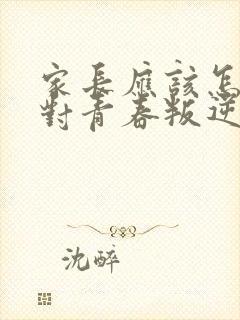 家長應該怎
對青春叛逆
沈醉